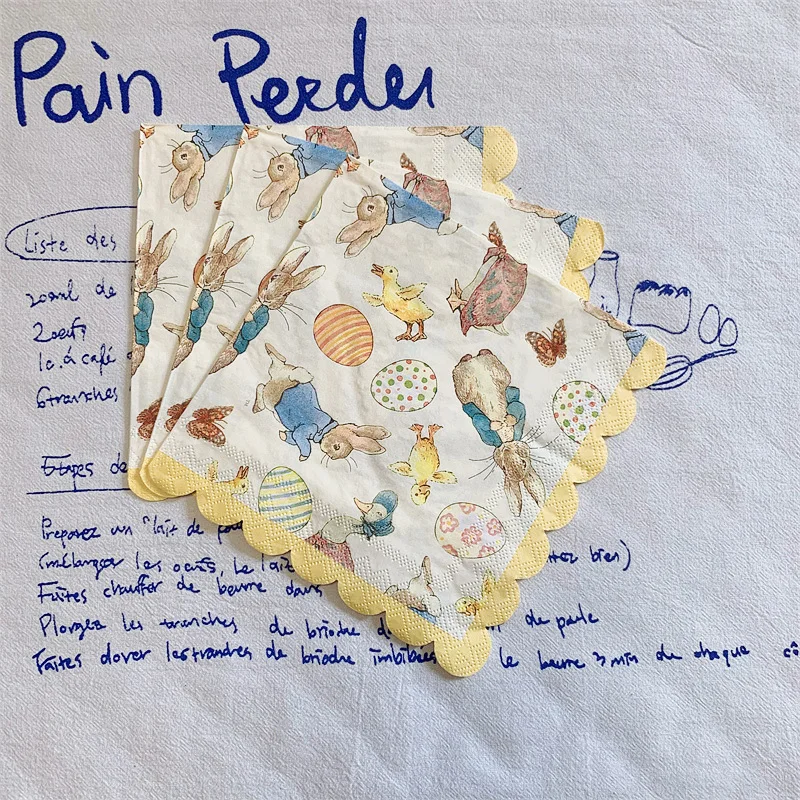 Pain Perdu
Liste des
20ml de
2 oeufs
1c. à café
6 tranches
Etapes de
Preparez un "lait de pou
(mélanger les oeufs, le lait ttez bien)
Faites chauffer de beurre dans
Plongez les tranches de brioche d de poule
Faites dorer les tranches de brioche imbibées le beurre 3 min de chaque cô